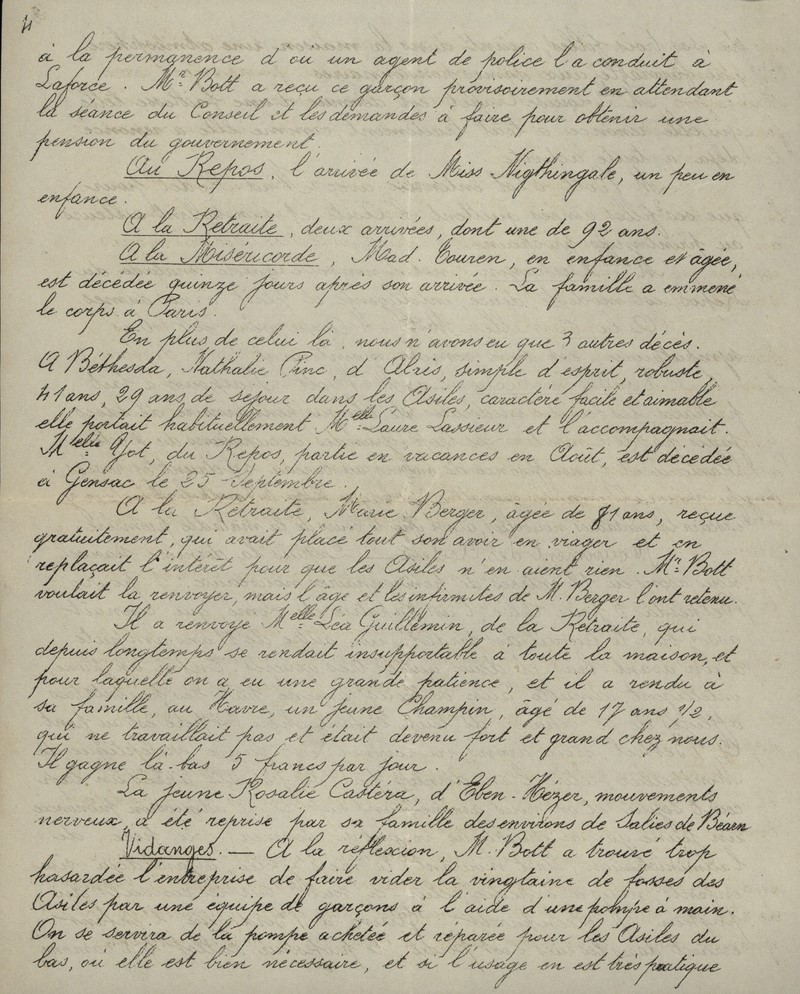 4
à la permanence d'où un agent de police l'a conduit à
Laforce. Mr. Bott a reçu ce garçon provisoirement en attendant
la séance du Conseil et les demandes à faire pour obtenir une
pension du gouvernement.
Au Repos, l'arrivée de Miss Nigthingale, un peu en
enfance.
A la Retraite, deux arrivées, dont une de 92 ans.
A la Miséricorde, Mad. Touren, en enfance et âgée,
est décédée quinze jours après son arrivée. La famille a emmené
le corps à Paris.
En plus de celui là, nous n'avons eu que 3 autres décès.
A Béthesda, Nathalie Pinc, d'Alais, simple d'esprit, robuste,
41 ans, 29 ans de séjour dans les Asiles, caractère facile et aimable
elle portait habituellement Melle Laure Lassieur et l'accompagnait.
Melle Yot, du Repos, partie en vacances en Août, est décédée
à Gensac le 25 Septembre.
A la Retraite, Marie Berger, âgée de 81 ans, reçue
gratuitement, qui avait placé tout son avoir en viager et en
replaçait l'intérêt pour que les Asiles n'en aient rien. Mr. Bott
voulait la renvoyer, mais l'âge et les infirmités de M. Berger l'ont retenu.
Il a renvoyé Melle Léa Guillemin, de la Retraite, qui
depuis longtemps se rendait insupportable à toute la maison, et
pour laquelle on a eu une grande patience, et il a rendu à
sa famille, au Havre, un jeune Champin, âgé de 17 ans 1/2,
qui ne travaillait pas et était devenu fort et grand chez nous.
Il gagne là-bas 5 francs par jour.
La jeune Rosalie Castéra, d'Eben-Hézer, mouvements
nerveux, a été reprise par sa famille des environs de Salies de Béarn
Vidanges. — A la réflexion, M. Bott a trouvé trop
hasardée l'entreprise de faire vider la vingtaine de fosses des
Asiles par une équipe de garçons à l'aide d'une pompe à main.
On se servira de la pompe achetée et réparée pour les Asiles du
bas, où elle est bien nécessaire, et si l'usage en est très pratique